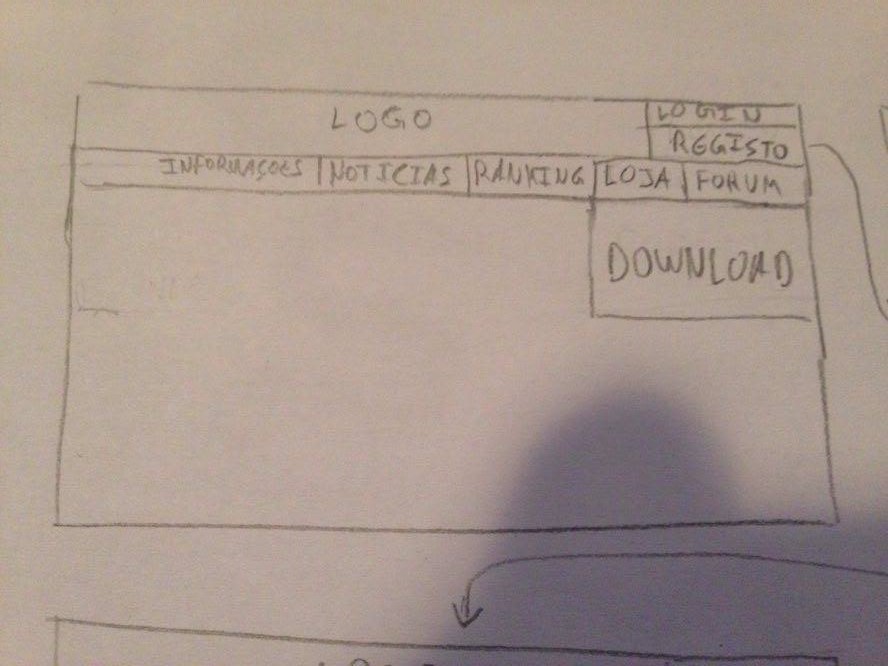 LOGO
LOGIN
REGISTO
INFORMAÇOES NOTICIAS RANKING LOJA FORUM
DOWNLOAD